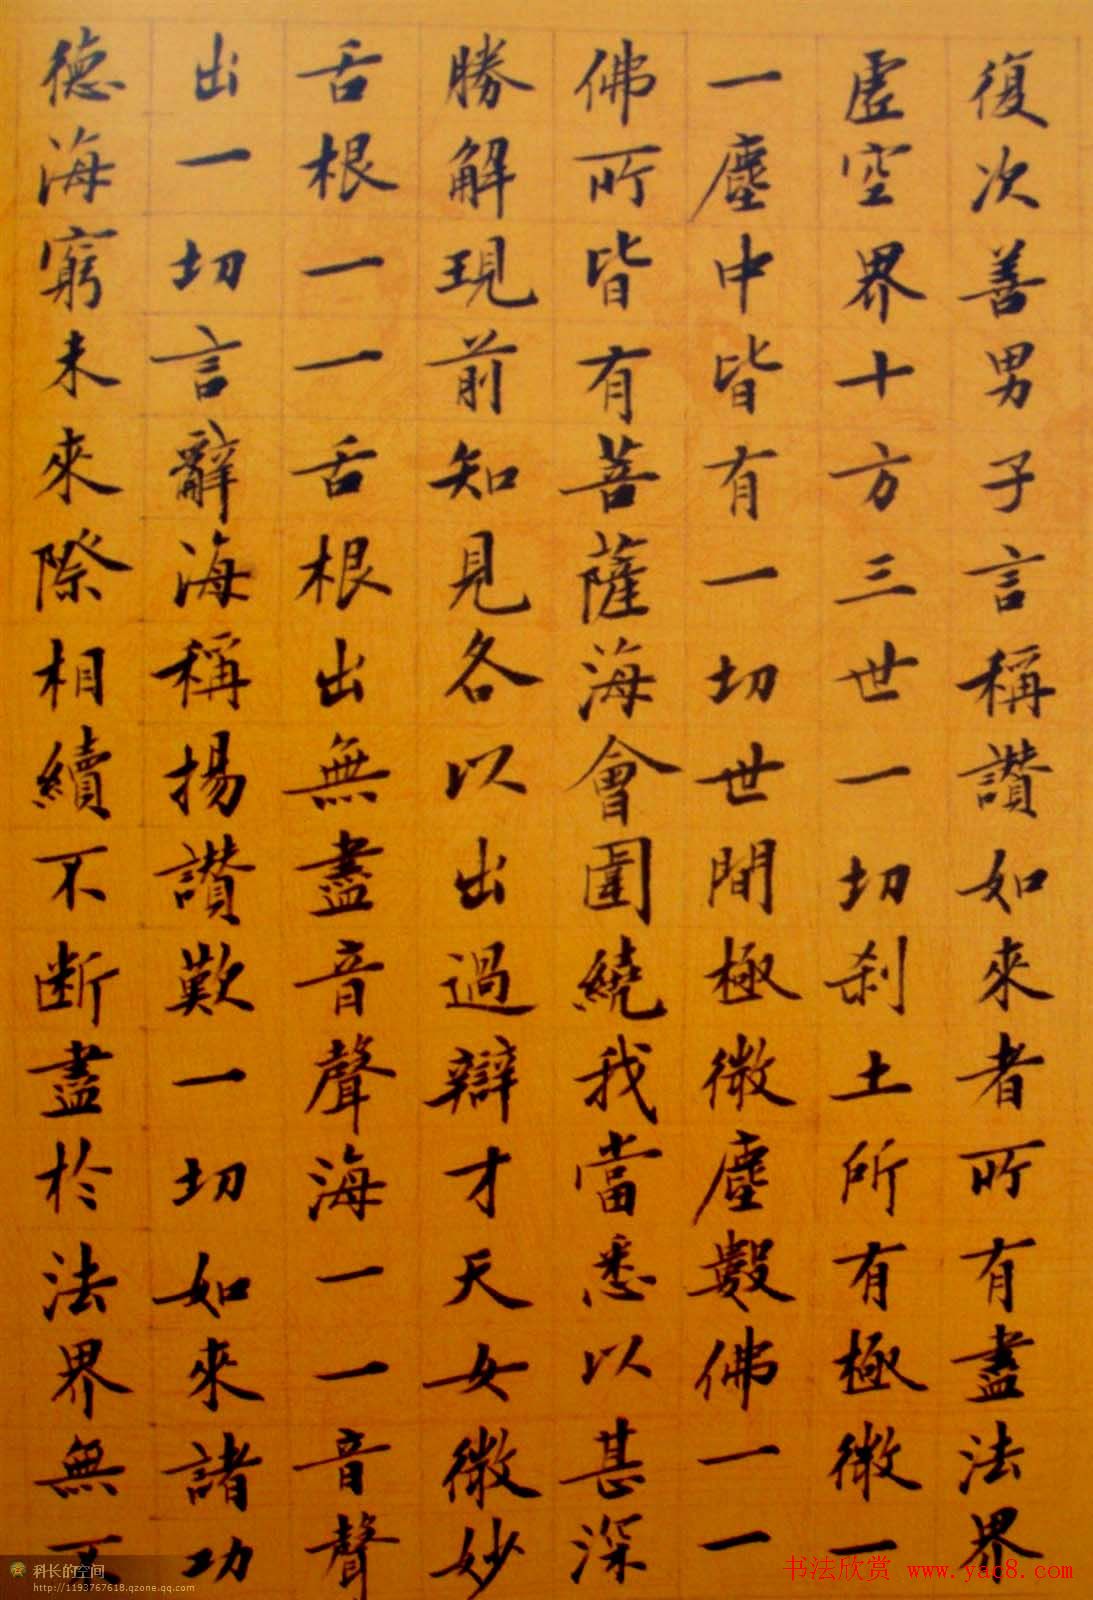 復次善男子言稱讃如來者所有盡法界
虛空界十方三世一切剎土所有極微一
一塵中皆有一切世間極微塵數佛一一
佛所皆有菩薩海會圍繞我當悉以甚深
勝解現前知見各以出過辯才天女微妙
舌根一一舌根出無盡音聲海一一音聲
出一切言辭海稱揚讃歎一切如來諸功
德海窮未來際相續不斷盡於法界無不
科长的空间
http://1193767618.qzone.qq.com
书法欣赏 www.yac8.com